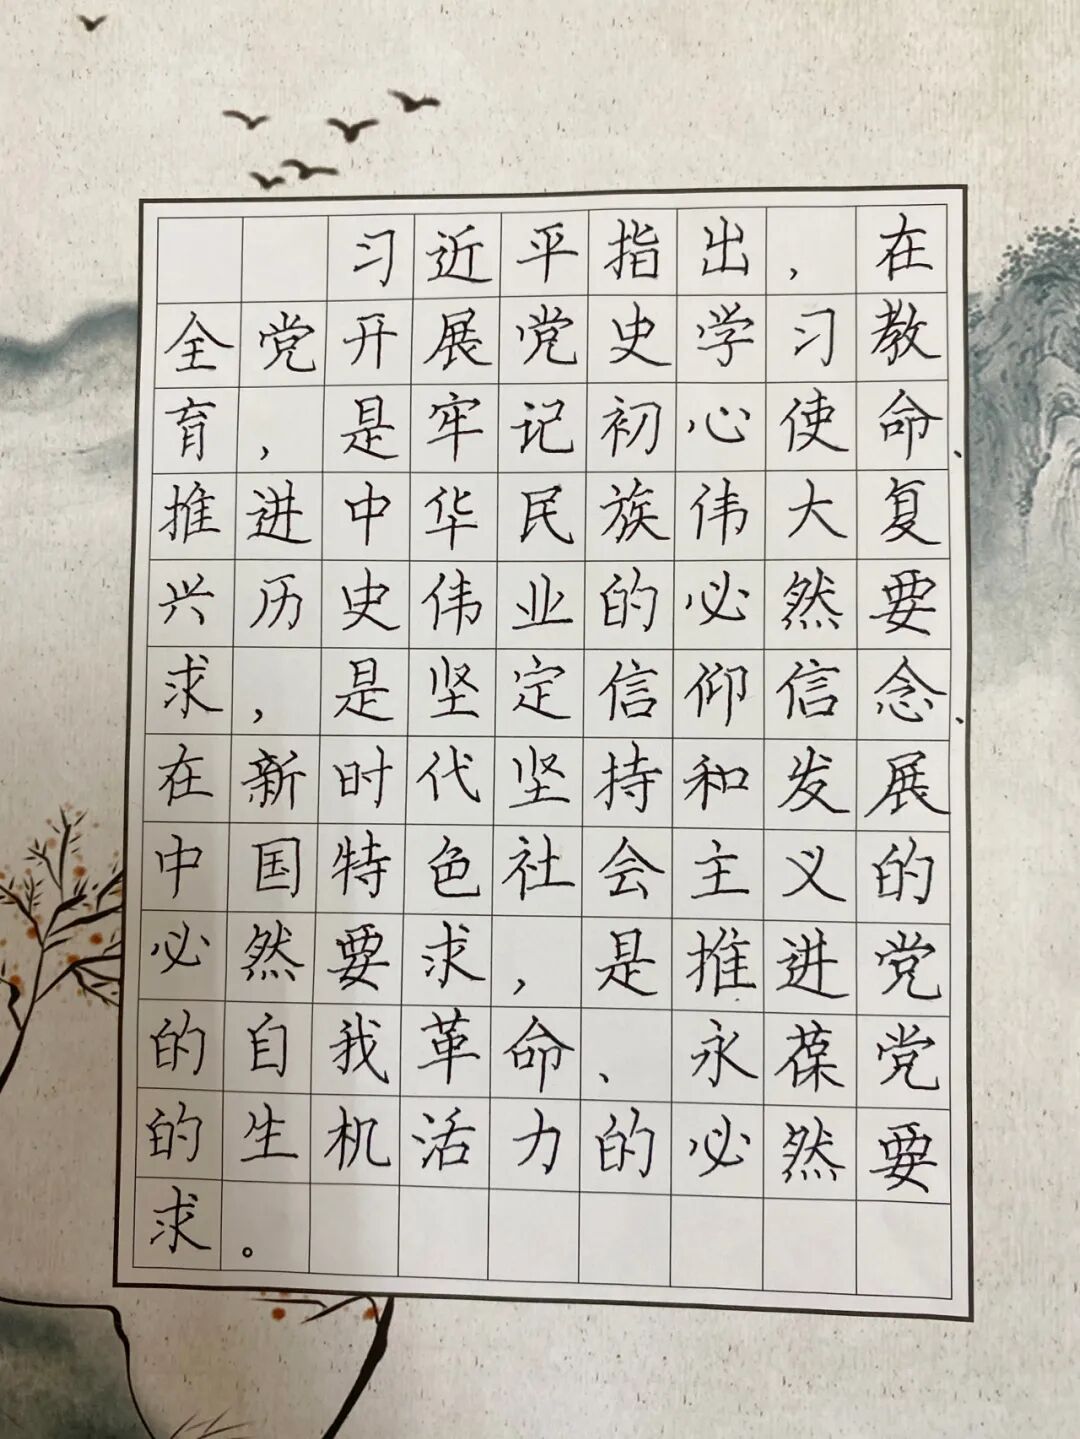 习近平指出，在
全党开展党史学习教
育，是牢记初心使命、
推进中华民族伟大复
兴历史伟业的必然要
求，是坚定信仰信念、
在新时代坚持和发展
中国特色社会主义的
必然要求，是推进党
的自我革命、永葆党
的生机活力的必然要
求。